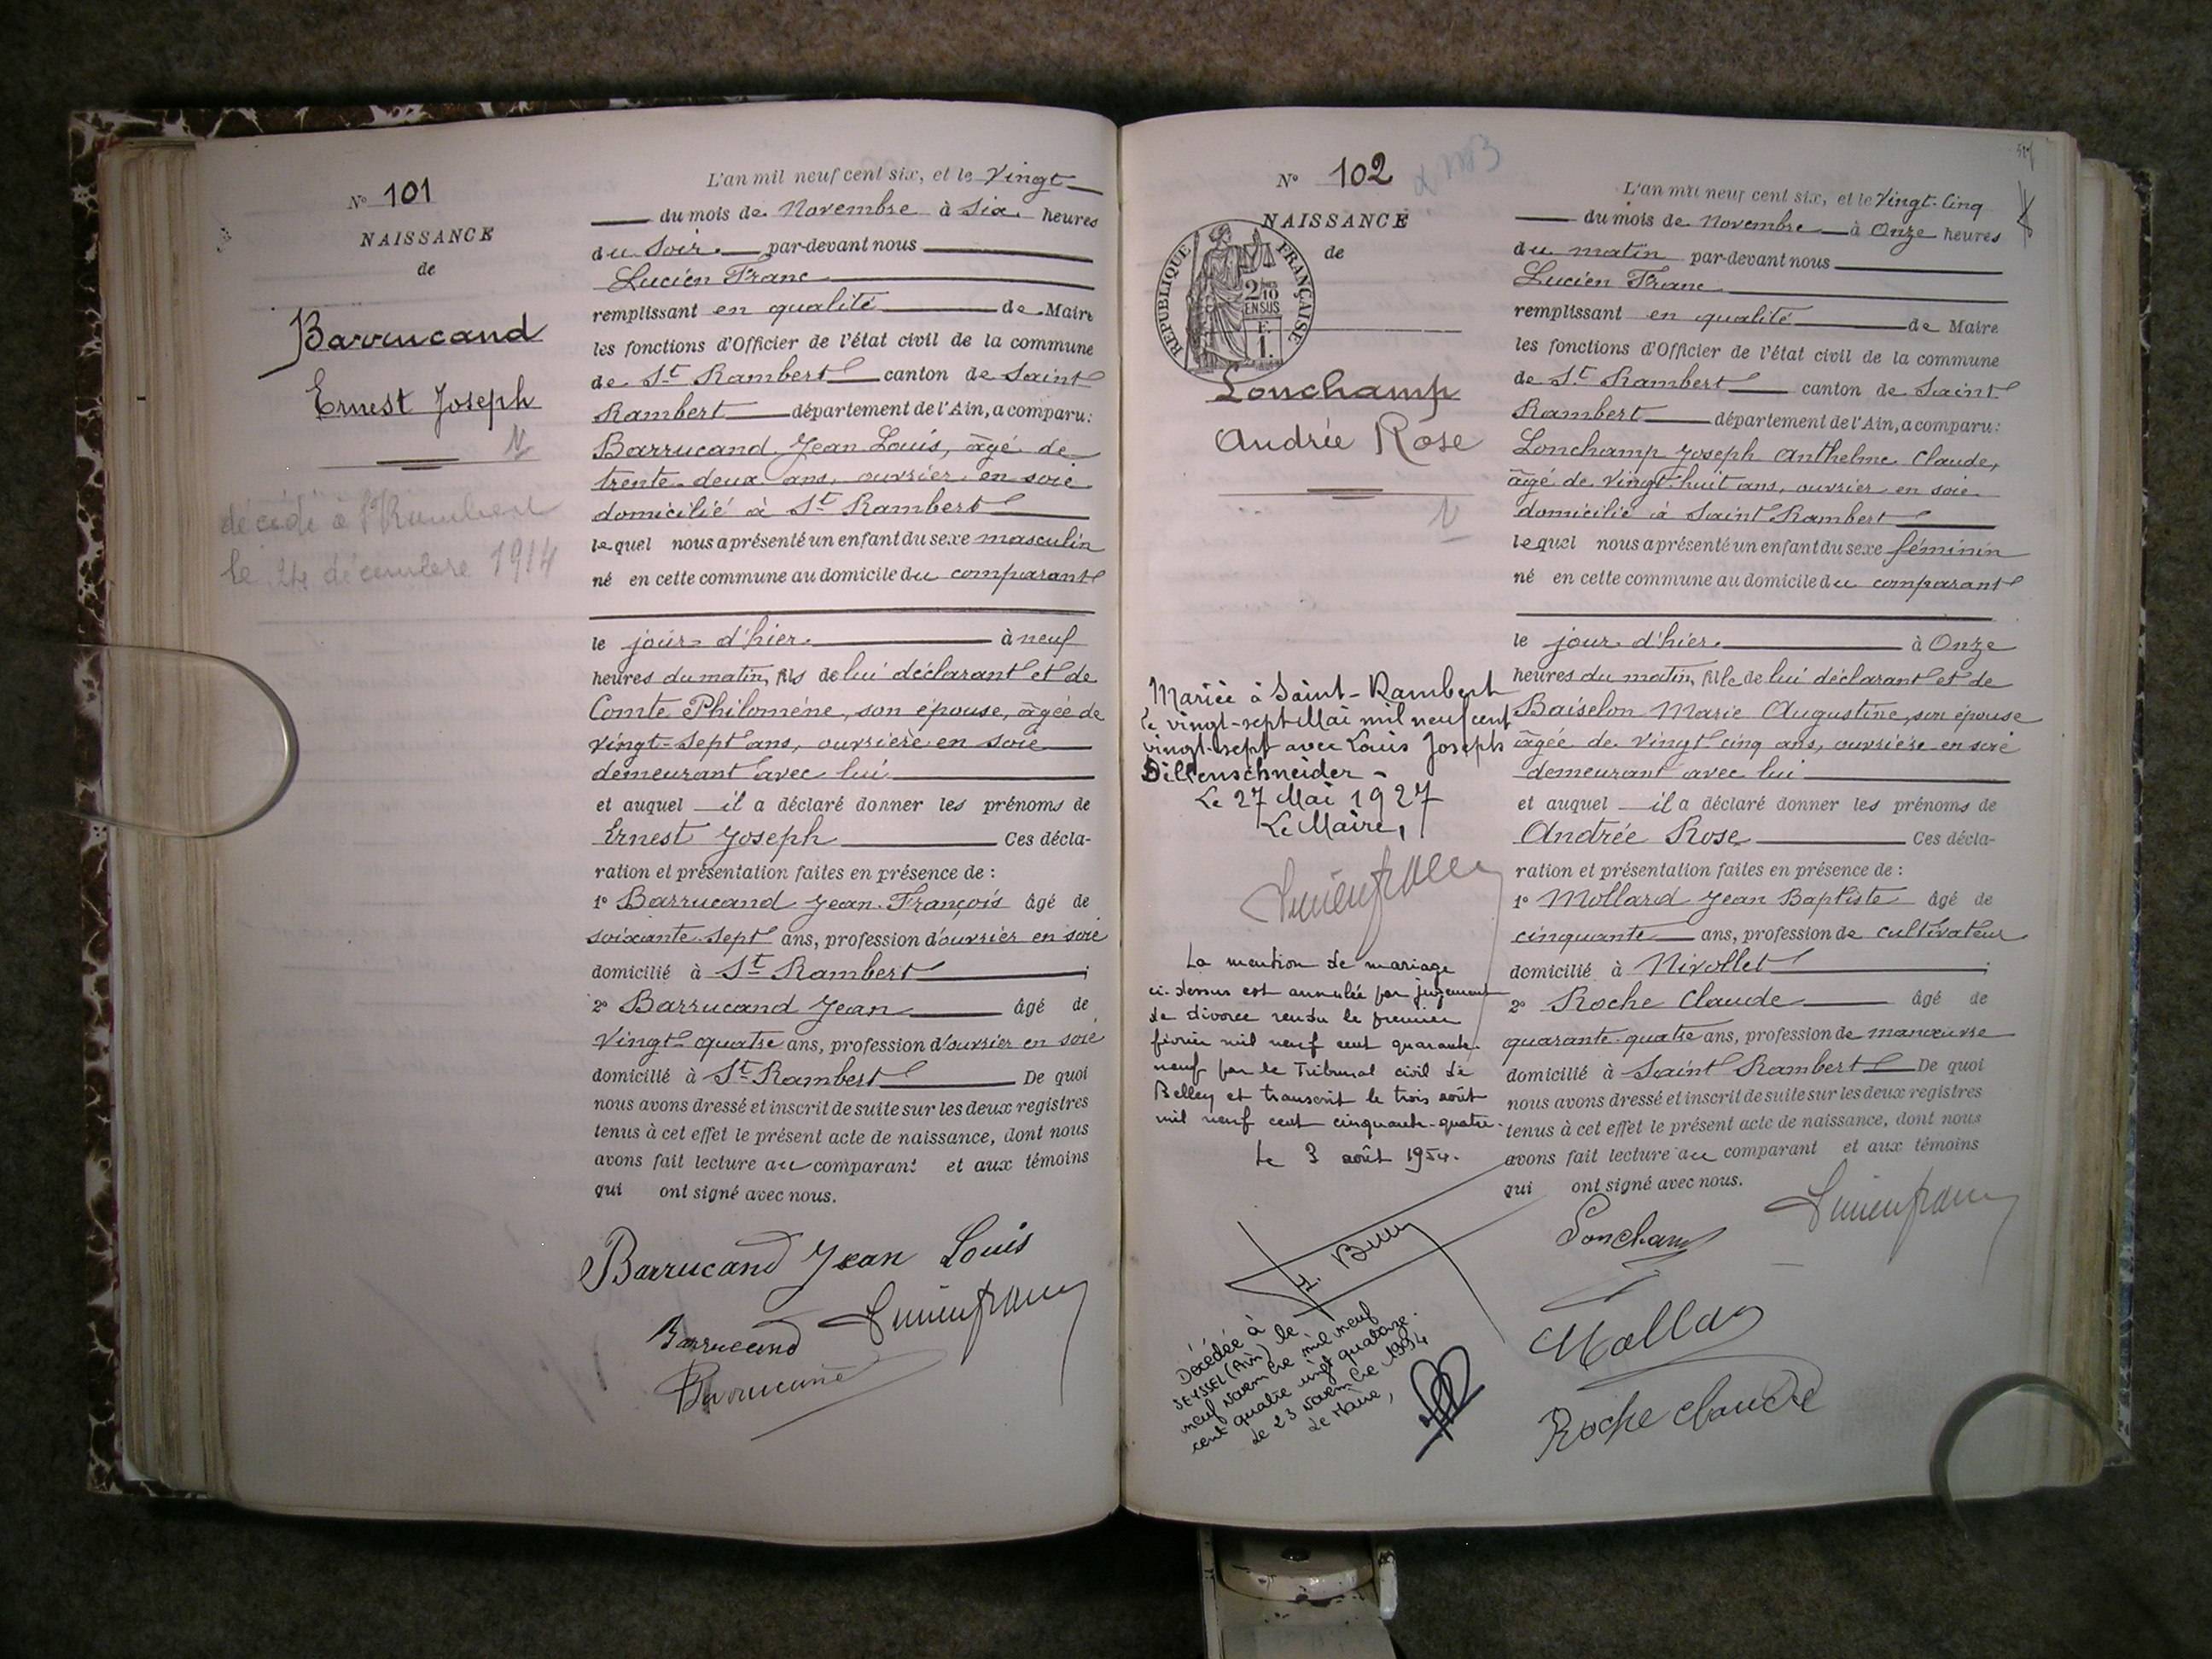 N° 101
NAISSANCE
de
Barrucand
Ernest Joseph
N
décédé à St Rambert
le 24 décembre 1914
L'an mil neuf cent six, et le Vingt
du mois de Novembre à Six heures
du Soir. par-devant nous
Lucien Franc
remplissant en qualité de Maire
les fonctions d'Officier de l'état civil de la commune
de St Rambert canton de Saint
Rambert département de l'Ain, a comparu:
Barrucand Jean Louis, âgé de
trente-deux ans, ouvrier en soie
domicilié à St Rambert
lequel nous a présenté un enfant du sexe masculin
né en cette commune au domicile du comparant
le jour d'hier. à neuf
heures du matin, fils de lui déclarant et de
Comte Philomène, son épouse, âgée de
vingt-sept ans, ouvrière en soie
demeurant avec lui
et auquel il a déclaré donner les prénoms de
Ernest Joseph Ces décla-
ration et présentation faites en présence de :
1° Barrucand Jean-François âgé de
soixante-sept ans, profession d'ouvrier en soie
domicilié à St Rambert ;
2° Barrucand Jean âgé de
Vingt-quatre ans, profession d'ouvrier en soie
domicilié à St Rambert De quoi
nous avons dressé et inscrit de suite sur les deux registres
tenus à cet effet le présent acte de naissance, dont nous
avons fait lecture au comparant et aux témoins
qui ont signé avec nous.
Barrucand Jean Louis
Barrucand Lucien Franc
Barrucand
N° 102
NAISSANCE
de
REPUBLIQUE FRANÇAISE
2/10
EN SUS
F.
1.
Lonchamp
Andrée Rose
N
Mariée à Saint-Rambert
le vingt-sept Mai mil neuf cent
vingt-sept avec Louis Joseph
Dillenschneider -
Le 27 Mai 1927
Le Maire,
Lucien Franc
La mention de mariage
ci-dessus est annulée par jugement
de divorce rendu le premier
février mil neuf cent quarante-
neuf par le Tribunal civil de
Belley et transcrit le trois août
mil neuf cent cinquante-quatre.
Le 3 août 1954.
Décédée à
SEYSSEL (Ain) le
neuf novembre mil neuf
cent quatre vingt quatorze.
Le 23 novembre 1994
Le Maire,
L'an mil neuf cent six, et le Vingt-Cinq
du mois de Novembre à Onze heures
du matin par-devant nous
Lucien Franc
remplissant en qualité de Maire
les fonctions d'Officier de l'état civil de la commune
de St Rambert canton de Saint
Rambert département de l'Ain, a comparu:
Lonchamp Joseph Anthelme Claude,
âgé de Vingt-huit ans, ouvrier en soie
domicilié à Saint Rambert
lequel nous a présenté un enfant du sexe féminin
né en cette commune au domicile du comparant
le jour d'hier. à Onze
heures du matin, fille de lui déclarant et de
Baiselon Marie Augustine, son épouse
âgée de Vingt-cinq ans, ouvrière en soie
demeurant avec lui
et auquel il a déclaré donner les prénoms de
Andrée Rose Ces décla-
ration et présentation faites en présence de :
1° Mollard Jean Baptiste âgé de
cinquante ans, profession de cultivateur
domicilié à Nivollet ;
2° Roche Claude âgé de
quarante-quatre ans, profession de manœuvre
domicilié à Saint Rambert De quoi
nous avons dressé et inscrit de suite sur les deux registres
tenus à cet effet le présent acte de naissance, dont nous
avons fait lecture au comparant et aux témoins
qui ont signé avec nous.
Lonchamp Lucien Franc
Mollard
Roche Claude